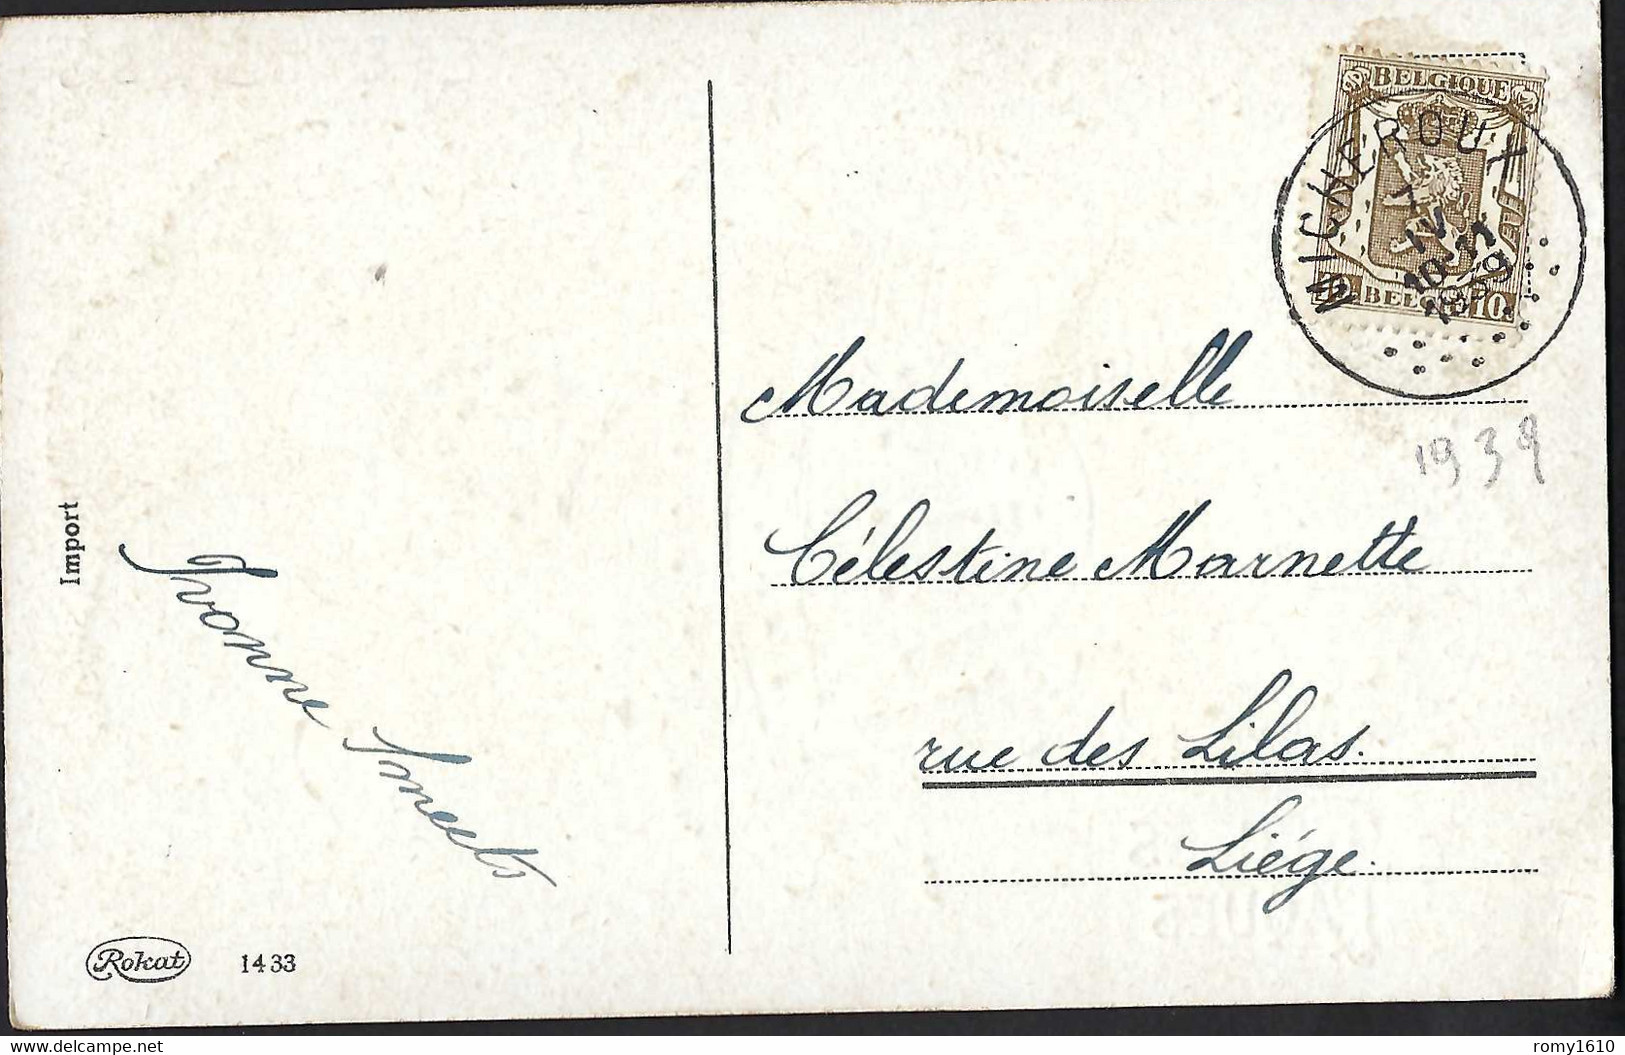 BELGIQUE
MICHEROUX
IV
10-11
1939
BELGIE 10
Mademoiselle
1939
Célestine Marnette
rue des Lilas.
Liége.
Import
Yvonne Smeets
Rokat 1433
delcampe.net
romy1610